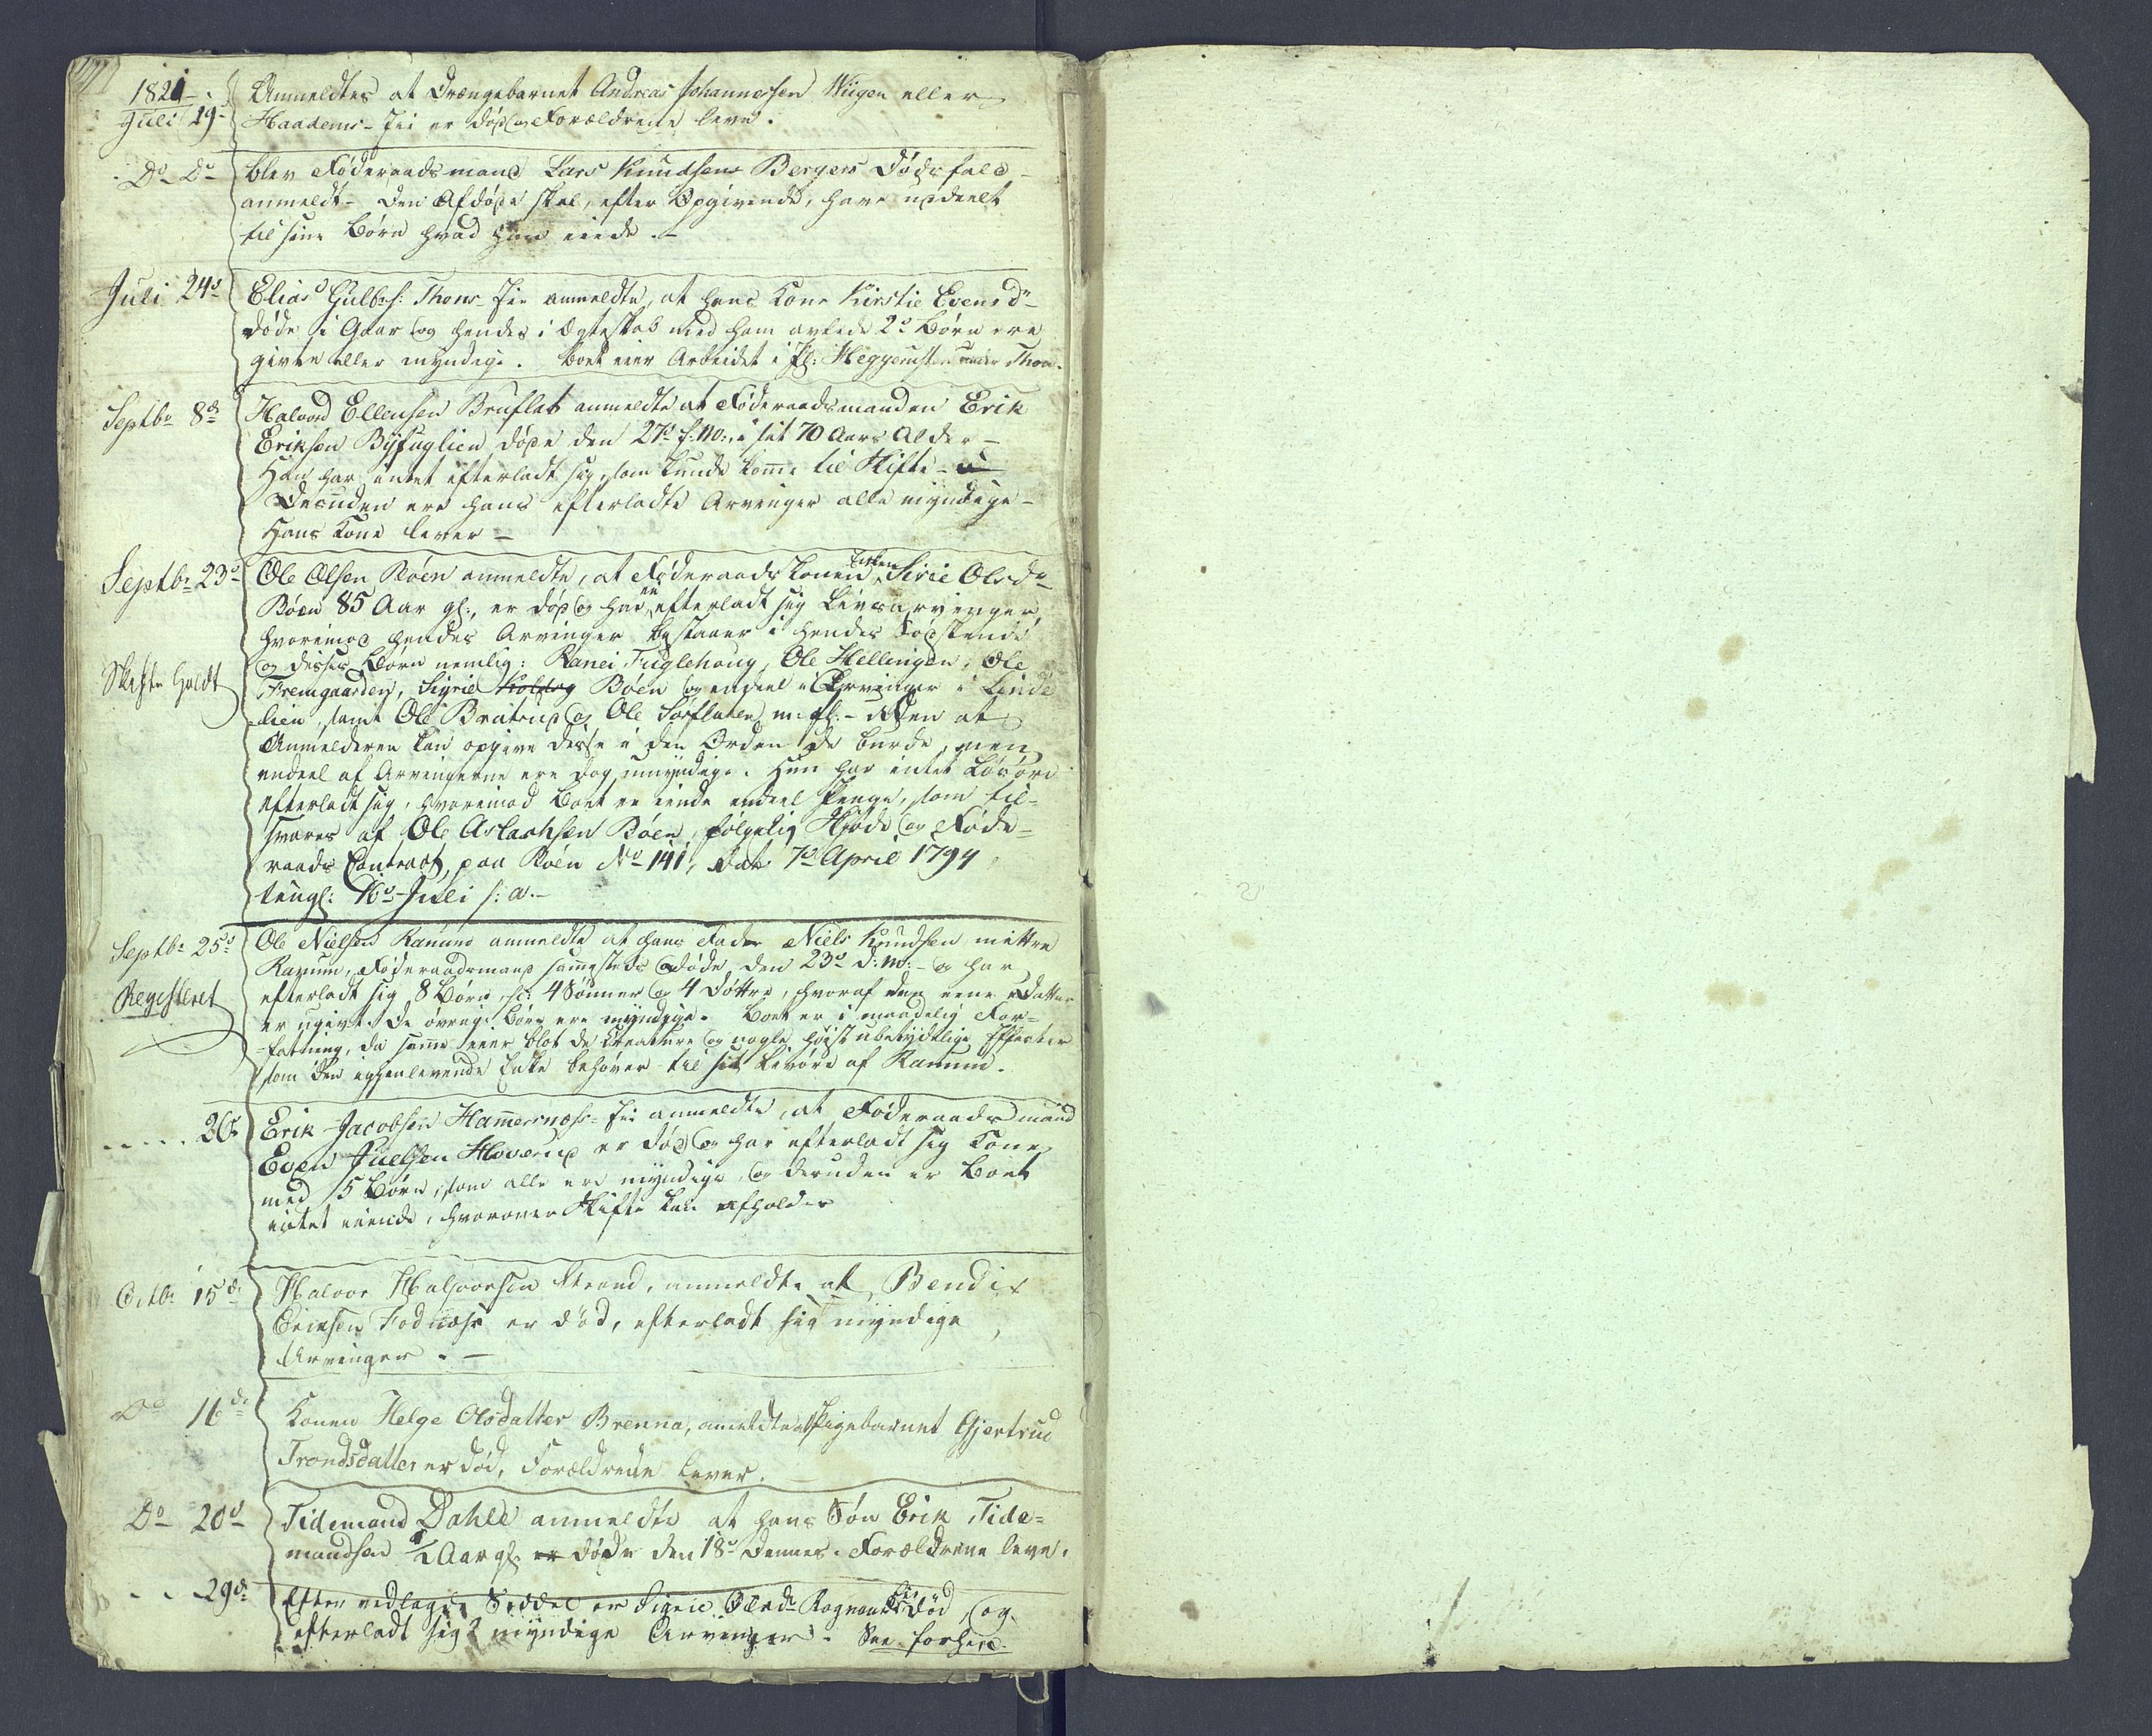 1821
Juli 19 Anmeldtes at Drængebarnet Andreas Johannesen Wiigen eller
Haadems-Eie er død og Forældrene leve.
Do Do blev Føderaadsmand Lars Knudsen Bergers Dødsfald
anmeldt - Den Afdøde skal, efter Opgivende, have uddeelt
til sine Børn hvad han eiede. -
Juli 24de Elias Gulbrs: Thons-Eie anmeldte, at hans Kone Kirstie Evensdr
døde i Gaar og hendes i Ægteskab med ham avlede 2de Børn ere
givte eller myndige. Boet eier Arbeidet i Pl: Heggensteen under Thon.
Septbr 8de Halvord Ellensen Bruflat anmeldte at Føderaadsmanden Erik
Eriksen Byfuglien døde den 27de f: M:, i sit 70 Aars Alder -
Han har intet efterladt sig, som kunde kome til Skifte -
Desuden ere hans efterladte Arvinger alle myndige -
Hans Kone lever -
Septbr 23de Ole Olsen Bøen anmeldte, at Føderaadskonen Enken Sirie Olsdr
Bøen 85 Aar gl:, er død og har ei efterladt sig Livsarvinger,
hvorimod hendes Arvinger bestaaer i hendes Sødskende
og disses Børn nemlig: Ranei Fuglehaug, Ole Hellingen, Ole
Skifte holdt Fremgaarden, Sigrie Bøen og endeel Arvinger i Linde
lien, samt Ole Bratrud og Ole Sørflaten m: fl: - Uden at
Anmelderen kan opgive disse i den Orden de burde, men
endeel af Arvingerne ere dog umyndige. Hun har intet Løsøre
efterladt sig, hvorimod Boet er eiende endeel Penge, som til-
svares af Ole Aslachsen Bøen, følgelig Skjøde og Føde-
raads Contract, paa Bøen No 141, dat: 7de April 1794,
tingl: 16de Juli s: a. -
Septbr 25de Ole Nielsen Ranum anmeldte at hans Fader Niels Knudsen mittre
Ranum, Føderaadsmand sammesteds døde den 23de d: M: - og har
Registeret efterladt sig 8 Børn, sc: 4 Sønner og 4 Døttre, hvoraf den eene Datter
er ugivt. De øvrige Børn ere myndige. Boet er i maadelig For-
fatning, da same eier blot de Creature og nogle høist ubetydelige Effecter
som den igjenlevende Enke behøver til sit Livøre af Ranum.
26de Erik Jacobsen Hamersnæs-Eie anmeldte, at Føderaadsmand
Even Juelsen Hoverud er død og har efterladt sig Kone
med 5 Børn, som alle ere myndige, og desuden er Boet
intet eiende, hvorover Skifte kan afholdes
Octbr 15de Halvor Halvorsen Strand, anmeldte at Bendix
Eriksen Fodnæs er død, efterladt sig myndige
Arvinger. -
Do 16de Konen Helge Olsdatter Brenna, anmeldte at Pigebarnet Gjertrud
Trondsdatter er død, Forældrene lever. -
Do 20de Tidemand Dahle anmeldte at hans Søn Erik Tide-
mandsen 1/2 Aar gl: er døde den 18de dennes. Forældrene leve.
29de Efter vedlagde Seddel er Sigrie Olsdr Rognaas Eie død, og
efterladt sig myndige Arvinger. See forhen.